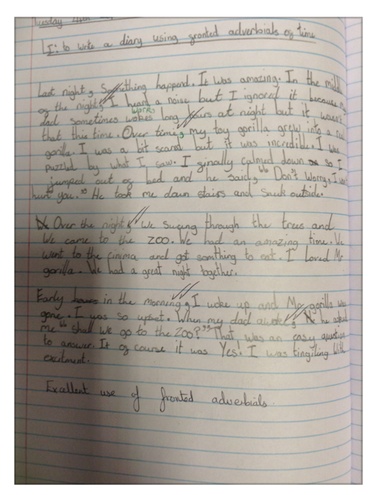 Tuesday
LI: to write a diary using fronted adverbials of time
Last night, Something happend. It was amazing. In the middle
of the night, I heard a noise but I ignored it because my
works
dad sometimes wakes long hours at night but it wasen't
that this time. Over time, my toy gorilla grew into a real
gorilla. I was a bit scared but it was incredible. I was
puzzled by what I saw. I finally calmed down so I
jumped out of bed and he said, "Don't worry, I won't
hurt you." He took me down stairs and snuk outside.
Over the night, we swung through the trees and
We came to the ZOO. We had an amazing time. We
went to the cinima and got something to eat. I loved Mr
gorilla. We had a great night together.
Early in the morning, I woke up and Mr gorilla was
gone. I was so upset. When my dad awoke, he asked
me "shall we go to the ZOO?" That was an easy question
to answer. It of course it was Yes. I was tingiling with
exitment.
Excellent use of fronted adverbials